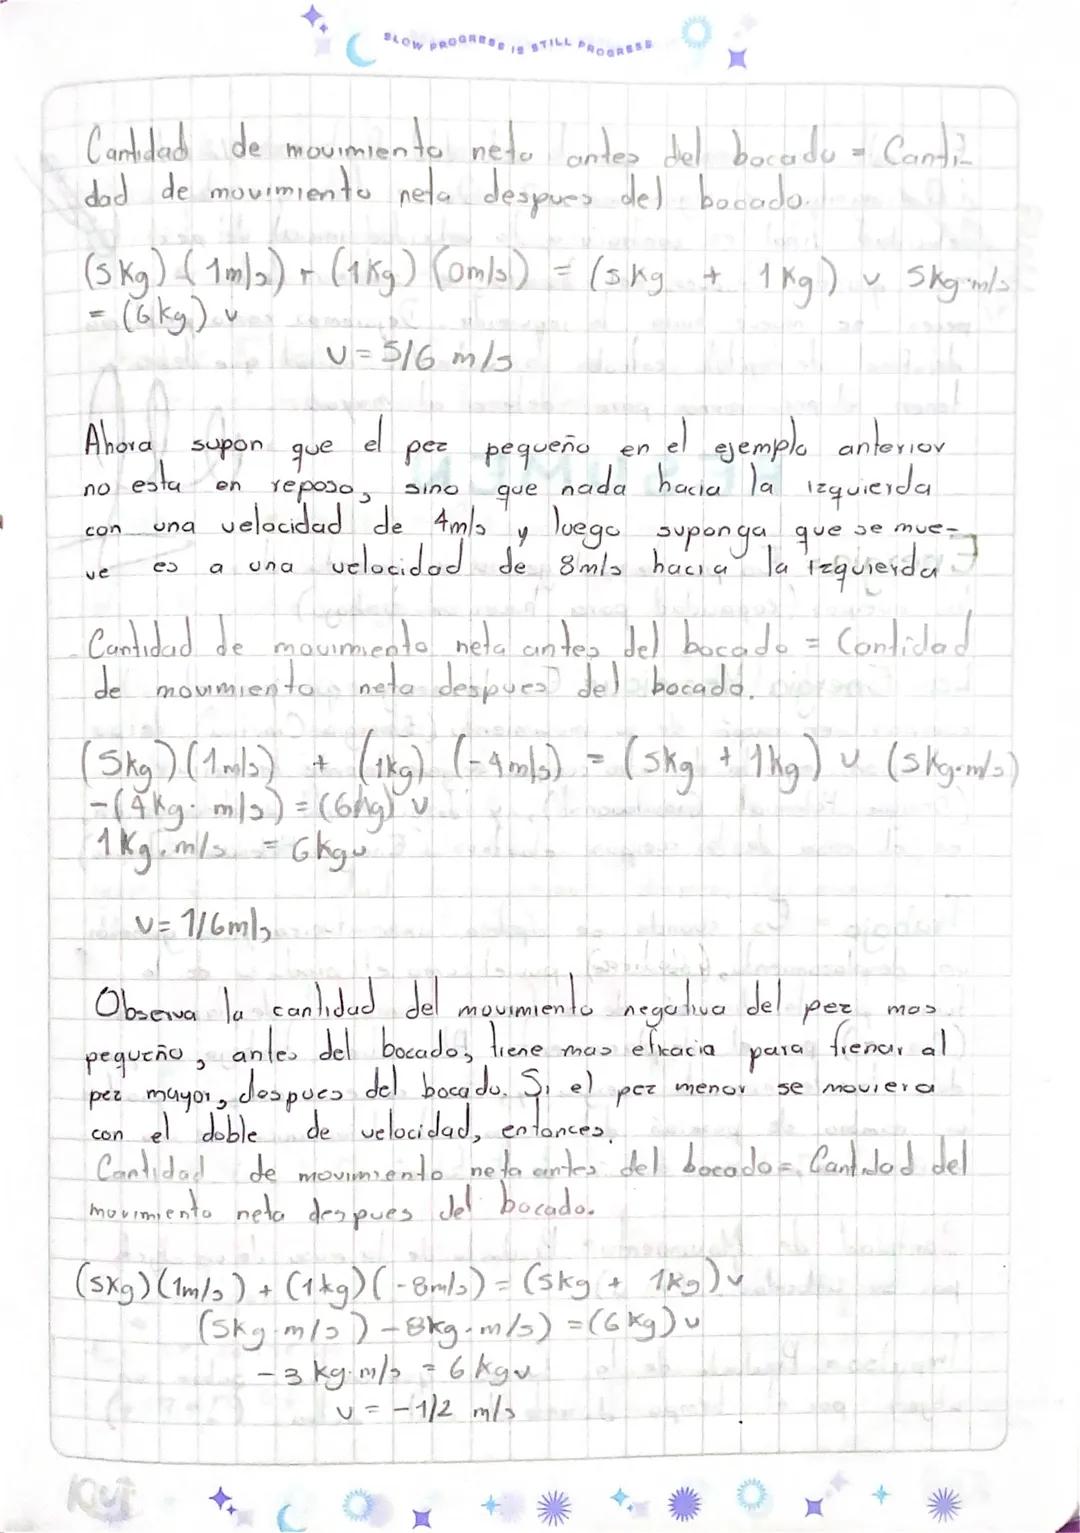 SLOW PROGRESS IS STILL PROGRESS
Cantidad de movimiento neto antes del bocado = Canti-
dad de movimiento neta despues del bocado.
(5kg) (1m/s) + (1Kg) (0m/s) = (5kg + 1Kg) v 5kg·m/s
= (6kg) v
v = 5/6 m/s
Ahora supon que el pez pequeño en el ejemplo anterior
no esta en reposo, sino que nada hacia la izquierda
con una velocidad de 4m/s y luego suponga que se mue-
ve es a una velocidad de 8m/s hacia la izquierda
Cantidad de movimiento neta antes del bocado = Cantidad
de movimiento neta despues del bocado.
(5kg) (1m/s) + (1kg) (-4m/s) = (5kg + 1kg) v (5kg·m/s)
-(4kg·m/s) = (6kg) v
1Kg·m/s = 6kgv
v = 1/6m/s
Observa la cantidad del movimiento negativa del pez mas
pequeño, antes del bocado, tiene mas eficacia para frenar al
pez mayor, despues del bocado. Si el pez menor se moviera
con el doble de velocidad, entonces,
Cantidad de movimiento neta antes del bocado = Cantidad del
movimiento neta despues del bocado.
(5kg)(1m/s) + (1kg)(-8m/s) = (5kg + 1kg)v
(5kg·m/s) - 8kg·m/s) = (6kg)v
-3 kg·m/s = 6kgv
v = -1/2 m/s